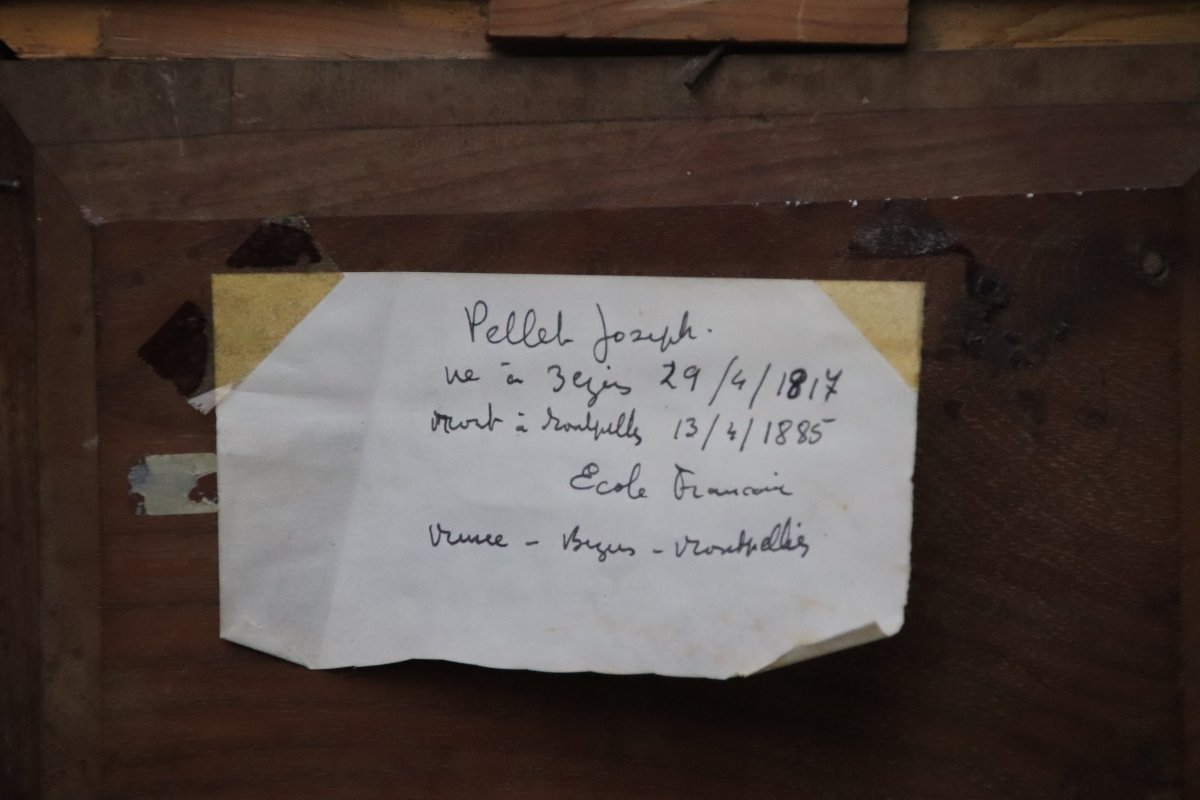 Pellet Joseph.
né à Bezies 29/4/1817
mort à Montpellier 13/4/1885
Ecole Francaise
Musee - Beziers - Montpellier